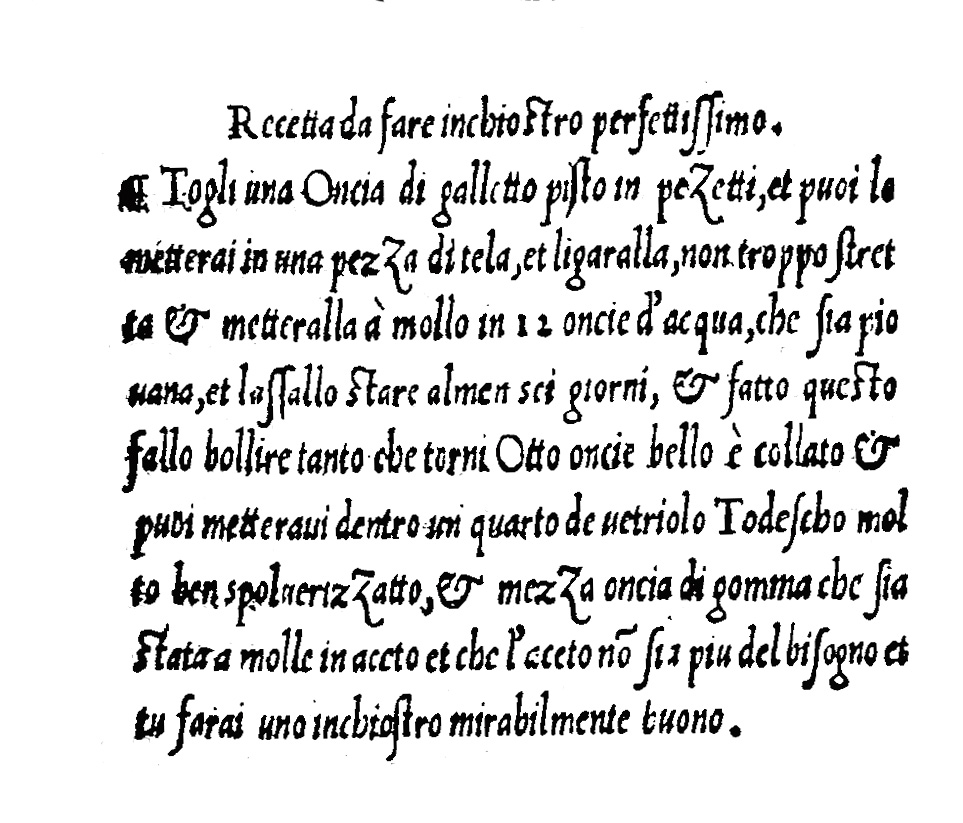 Recetta da fare inchiostro perfettissimo.
¶ Togli una Oncia di galletto pisto in peZetti, et puoi lo
metterai in una pezZa di tela, et ligaralla, non troppo stret
ta & metteralla à mollo in 12 oncie d'acqua, che sia pio
uana, et lassallo stare almen sei giorni, & fatto questo
fallo bollire tanto che torni Otto oncie bello è collato &
puoi metteraui dentro un quarto de uetriolo Todescho mol
to ben spoluerizZatto, & mezZa oncia di gomma che sia
stata a molle in aceto et che l'aceto nõ sia piu del bisogno et
tu farai uno inchiostro mirabilmente buono.